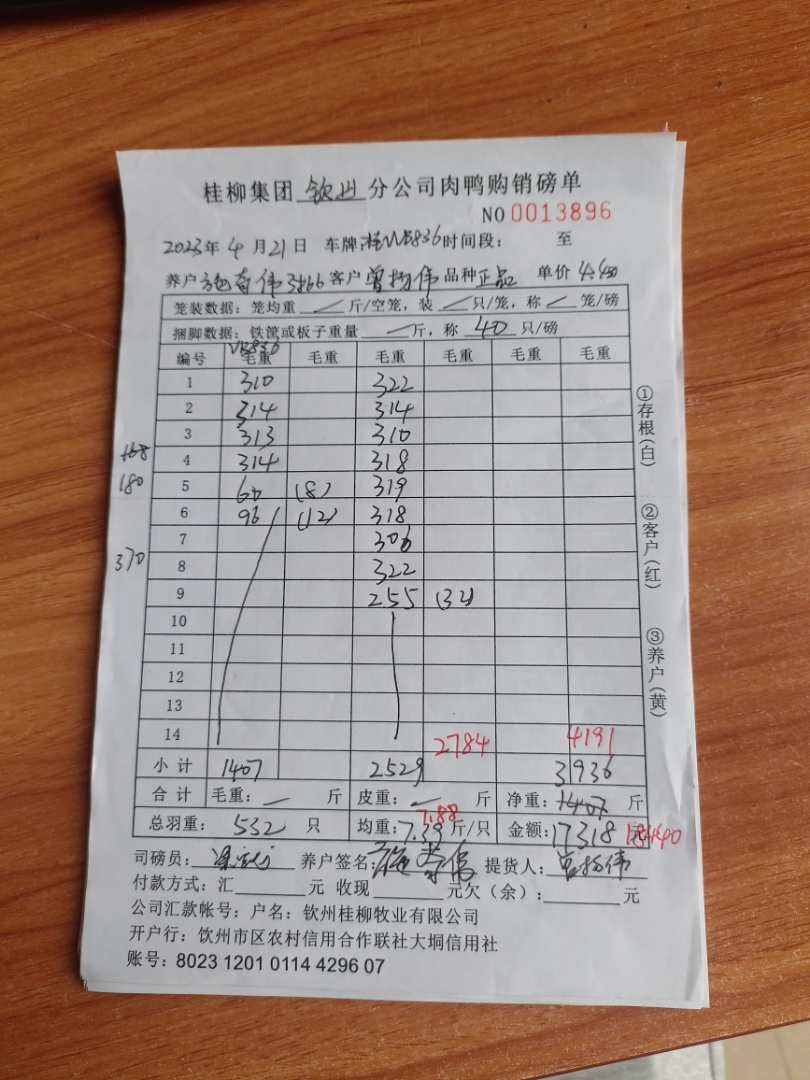 桂柳集团 钦州 分公司肉鸭购销磅单
NO 0013896
2023年 4 月 21 日 车牌: 836 时间段: 至
养户 伟 客户 曾扬伟 品种 正品 单价 4.40
笼装数据: 笼均重 斤/空笼, 装 只/笼, 称 笼/磅
捆脚数据: 铁筐或板子重量 斤, 称 40 只/磅
编号 毛重 毛重 毛重 毛重 毛重 毛重
1 310 322
2 314 314
3 313 310
168
4 314 318
180
5 60 (8) 319
6 96 (12) 318
7 306
370
8 322
9 255 (32)
10
11
12
13
14 2784 4191
小计 1407 2529 3936
合计 毛重: 斤 皮重: 斤 净重: 1407 斤
7.88
总羽重: 532 只 均重: 7.39 斤/只 金额: 17318 元 18440
司磅员: 养户签名: 伟 提货人: 曾扬伟
付款方式: 汇 元 收现 元欠(余): 元
公司汇款帐号: 户名: 钦州桂柳牧业有限公司
开户行: 钦州市区农村信用合作联社大垌信用社
账号: 8023 1201 0114 4296 07
①存根(白)
②客户(红)
③养户(黄)